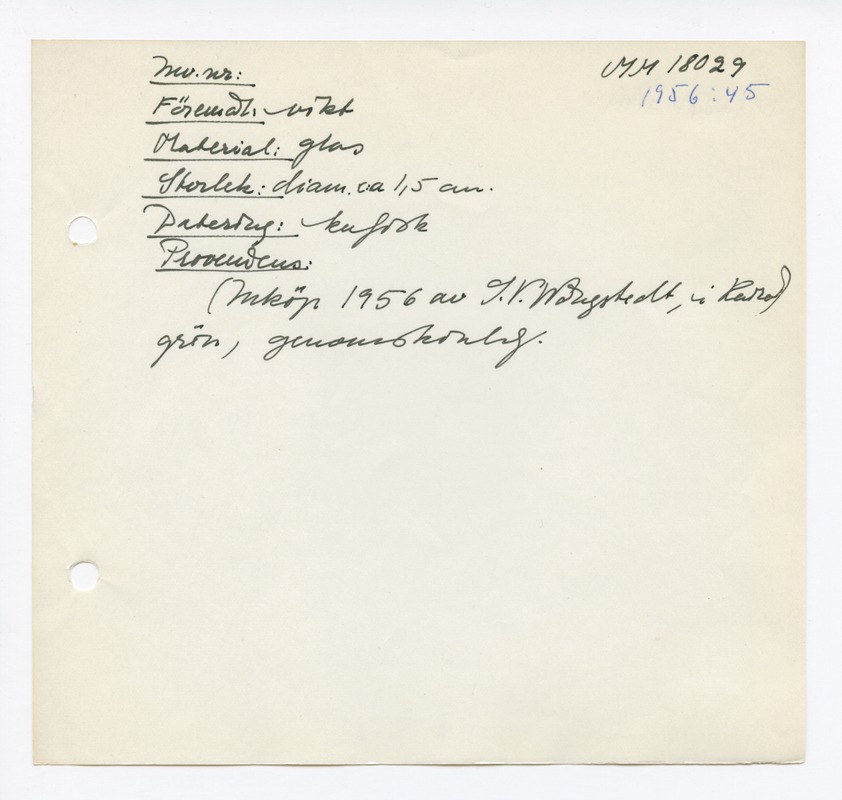 Inv.nr: MM 18029
1956:45
Föremål: vikt
Material: glas
Storlek: diam. ca 1,5 cm.
Datering: kufisk
Proveniens:
(Inköp 1956 av S.V. Wingstedt, i Kairo)
grön, genomskinlig.